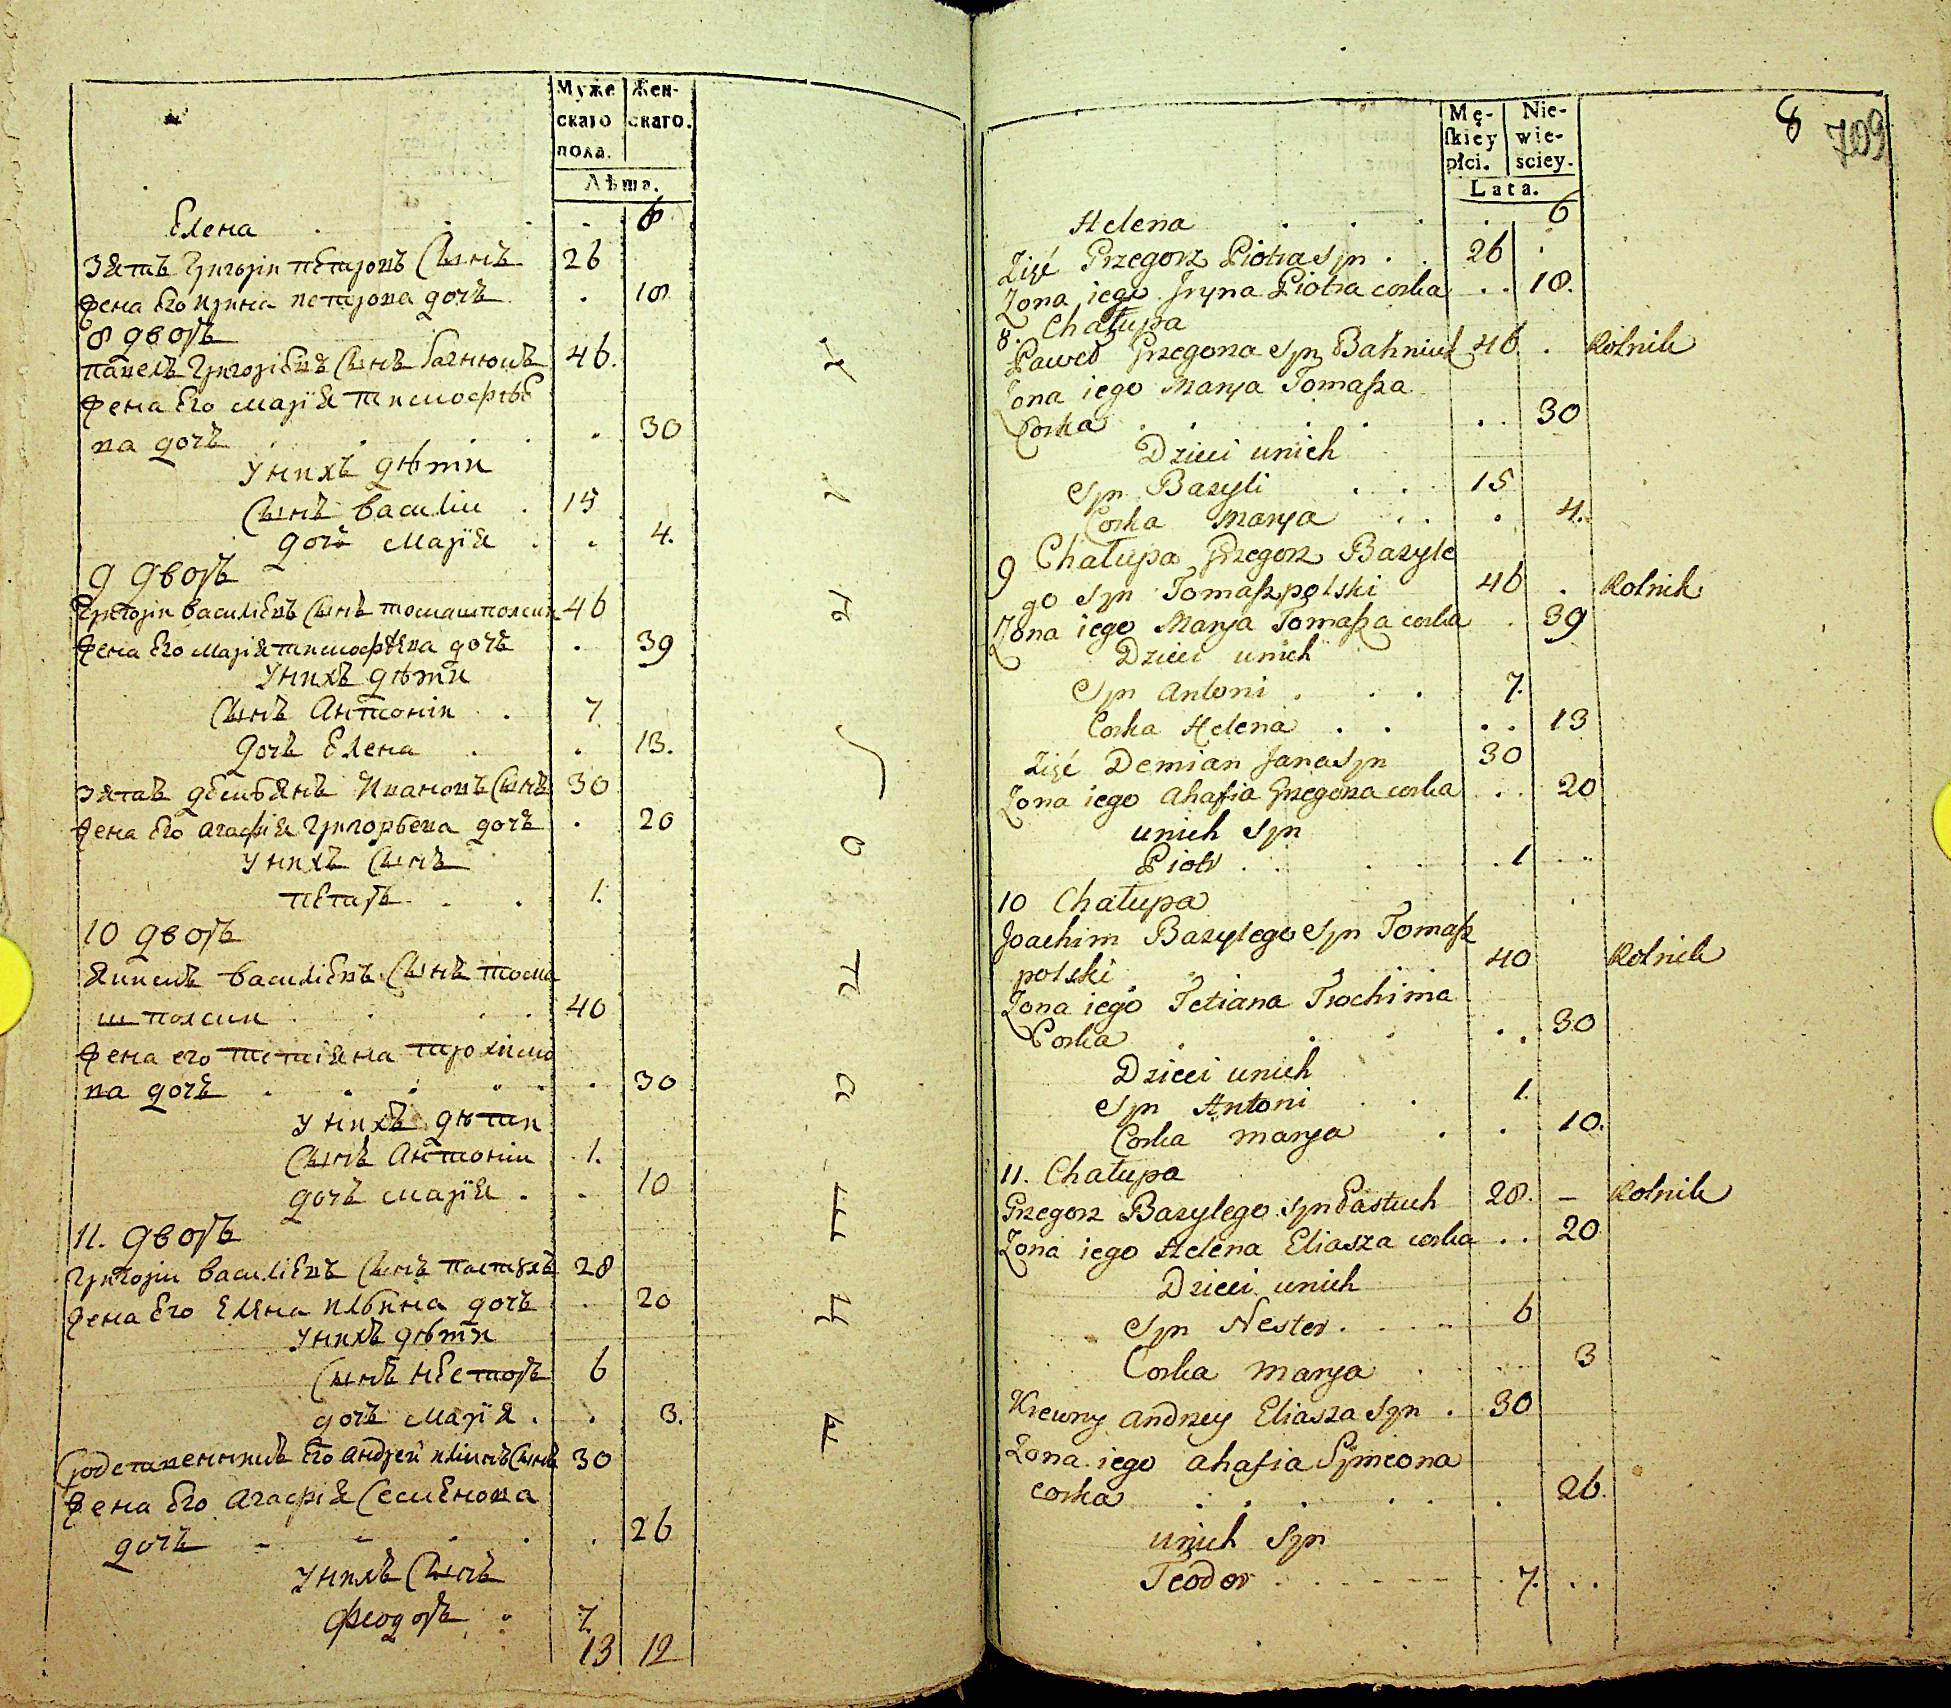 Муже
скаго
пола.
Жен-
скаго.
Лѣта.
Елена 6
Зять Григорій Петровъ Сынъ 26
Жена Его Ирина Петрова дочь 18
8 дворъ
Павелъ Григоріевъ Сынъ Багнюкъ 46.
Жена Его Марія Тимофѣе
ва дочь 30
У нихъ дѣти
Сынъ Василій 15
дочь Марія 4.
9 дворъ
Григорій Василіевъ Сынъ Томашполски 46
Жена Его Марія Тимофѣева дочь 39
У нихъ дѣти
Сынъ Антоній 7
Дочь Елена 13.
Зять Демьянъ Ивановъ Сынъ 30
Жена Его Агафія Григорьева дочь 20
У нихъ Сынъ
Петръ 1.
10 дворъ
Якимъ Василіевъ Сынъ Тома
шполски 40
Жена его Тетіяна Трохимо
ва дочь 30
У нихъ дѣти
Сынъ Антоній 1.
дочь Марія 10
11. дворъ
Григорій Василіевъ Сынъ Пастухъ 28
Жена Его Елена Ильина дочь 20
У нихъ дѣти
Сынъ Несторъ 6
дочь Марія 3.
Родственникъ Его Андрей Иліинъ Сынъ 30
Жена Его Агафія Семенова
дочь 26
У нихъ Сынъ
Феодоръ 7.
13 12
8
709
Mę-
skiey
płci.
Nie-
wie-
sciey.
Lata.
Helena 6
Zięć Grzegorz Piotra syn 26
Zona iego Jryna Piotra corka 18.
8. Chałupa
Paweł Grzegorza syn Bahniuk 46 Rolnik
Zona iego Marya Tomasza
Corka 30
Dzieci unich
Syn Bazyli 15
Corka Marya 4.
9 Chałupa Grzegorz Bazyle
go syn Tomaszpolski 46 Rolnik
Zona iego Marya Tomasza corka 39
Dzieci unich
Syn Antoni 7.
Corka Helena 13
Zięć Demian Jana syn 30
Zona iego Ahafia Grzegorza corka 20
unich syn
Piotr 1
10 Chałupa
Joachim Bazylego syn Tomasz
polski 40 Rolnik
Zona iego Tetiana Trochima
Corka 30
Dzieci unich
Syn Antoni 1.
Corka Marya 10.
11. Chałupa
Grzegorz Bazylego syn Pastuch 28. – Rolnik
Zona iego Helena Eliasza corka 20
Dzieci unich
Syn Nestor 6
Corka Marya 3
Krewny Andrzey Eliasza syn 30
Zona iego Ahafia Symeona
corka 26.
unich syn
Teodor 7.